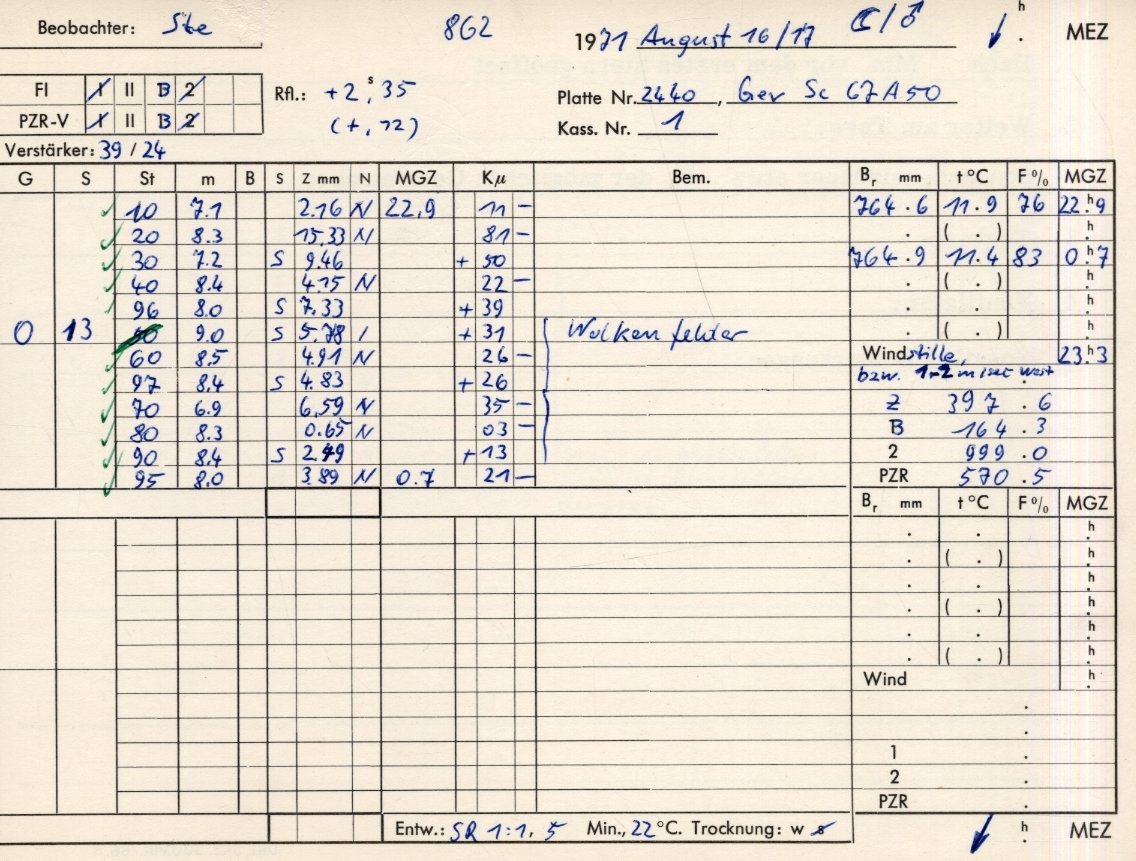 Beobachter: Ste 862 1971 August 16/17 ☾/♂ h . MEZ
FI I II B 2 Rfl.: +2ˢ,35 Platte Nr. 2440, Gev Sc 67A50
PZR-V I II B 2 (+,12) Kass. Nr. 1
Verstärker: 39 / 24
G S St m B S Z mm N MGZ Kμ Bem. Bᵣ mm t °C F % MGZ
10 7.1 2.16 N 22,9 11 – 764.6 11.9 76 22.ʰ9
20 8.3 15.33 N 81 – . ( . ) .ʰ
30 7.2 S 9.46 + 50 764.9 11.4 83 0.ʰ7
40 8.4 4.15 N 22 – . ( . ) .ʰ
96 8.0 S 7.33 + 39 . . .ʰ
0 13 50 9.0 S 5.78 / + 31 Wolken fehler . ( . ) .ʰ
60 8.5 4.91 N 26 – Windstille, 23.ʰ3
97 8.4 S 4.83 + 26 bzw. 1-2 m/sec West
70 6.9 6.59 N 35 – Z 397.6
80 8.3 0.65 N 03 – B 164.3
90 8.4 S 2.49 + 13 2 999.0
95 8.0 3.89 N 0.7 21 – PZR 570.5
Bᵣ mm t °C F % MGZ
. . .ʰ
. ( . ) .ʰ
. . .ʰ
. ( . ) .ʰ
. . .ʰ
. ( . ) .ʰ
Wind .ʰ
.
.
1 .
2 .
PZR .
Entw.: SR 1:1, 5 Min., 22 °C. Trocknung: w s h . MEZ